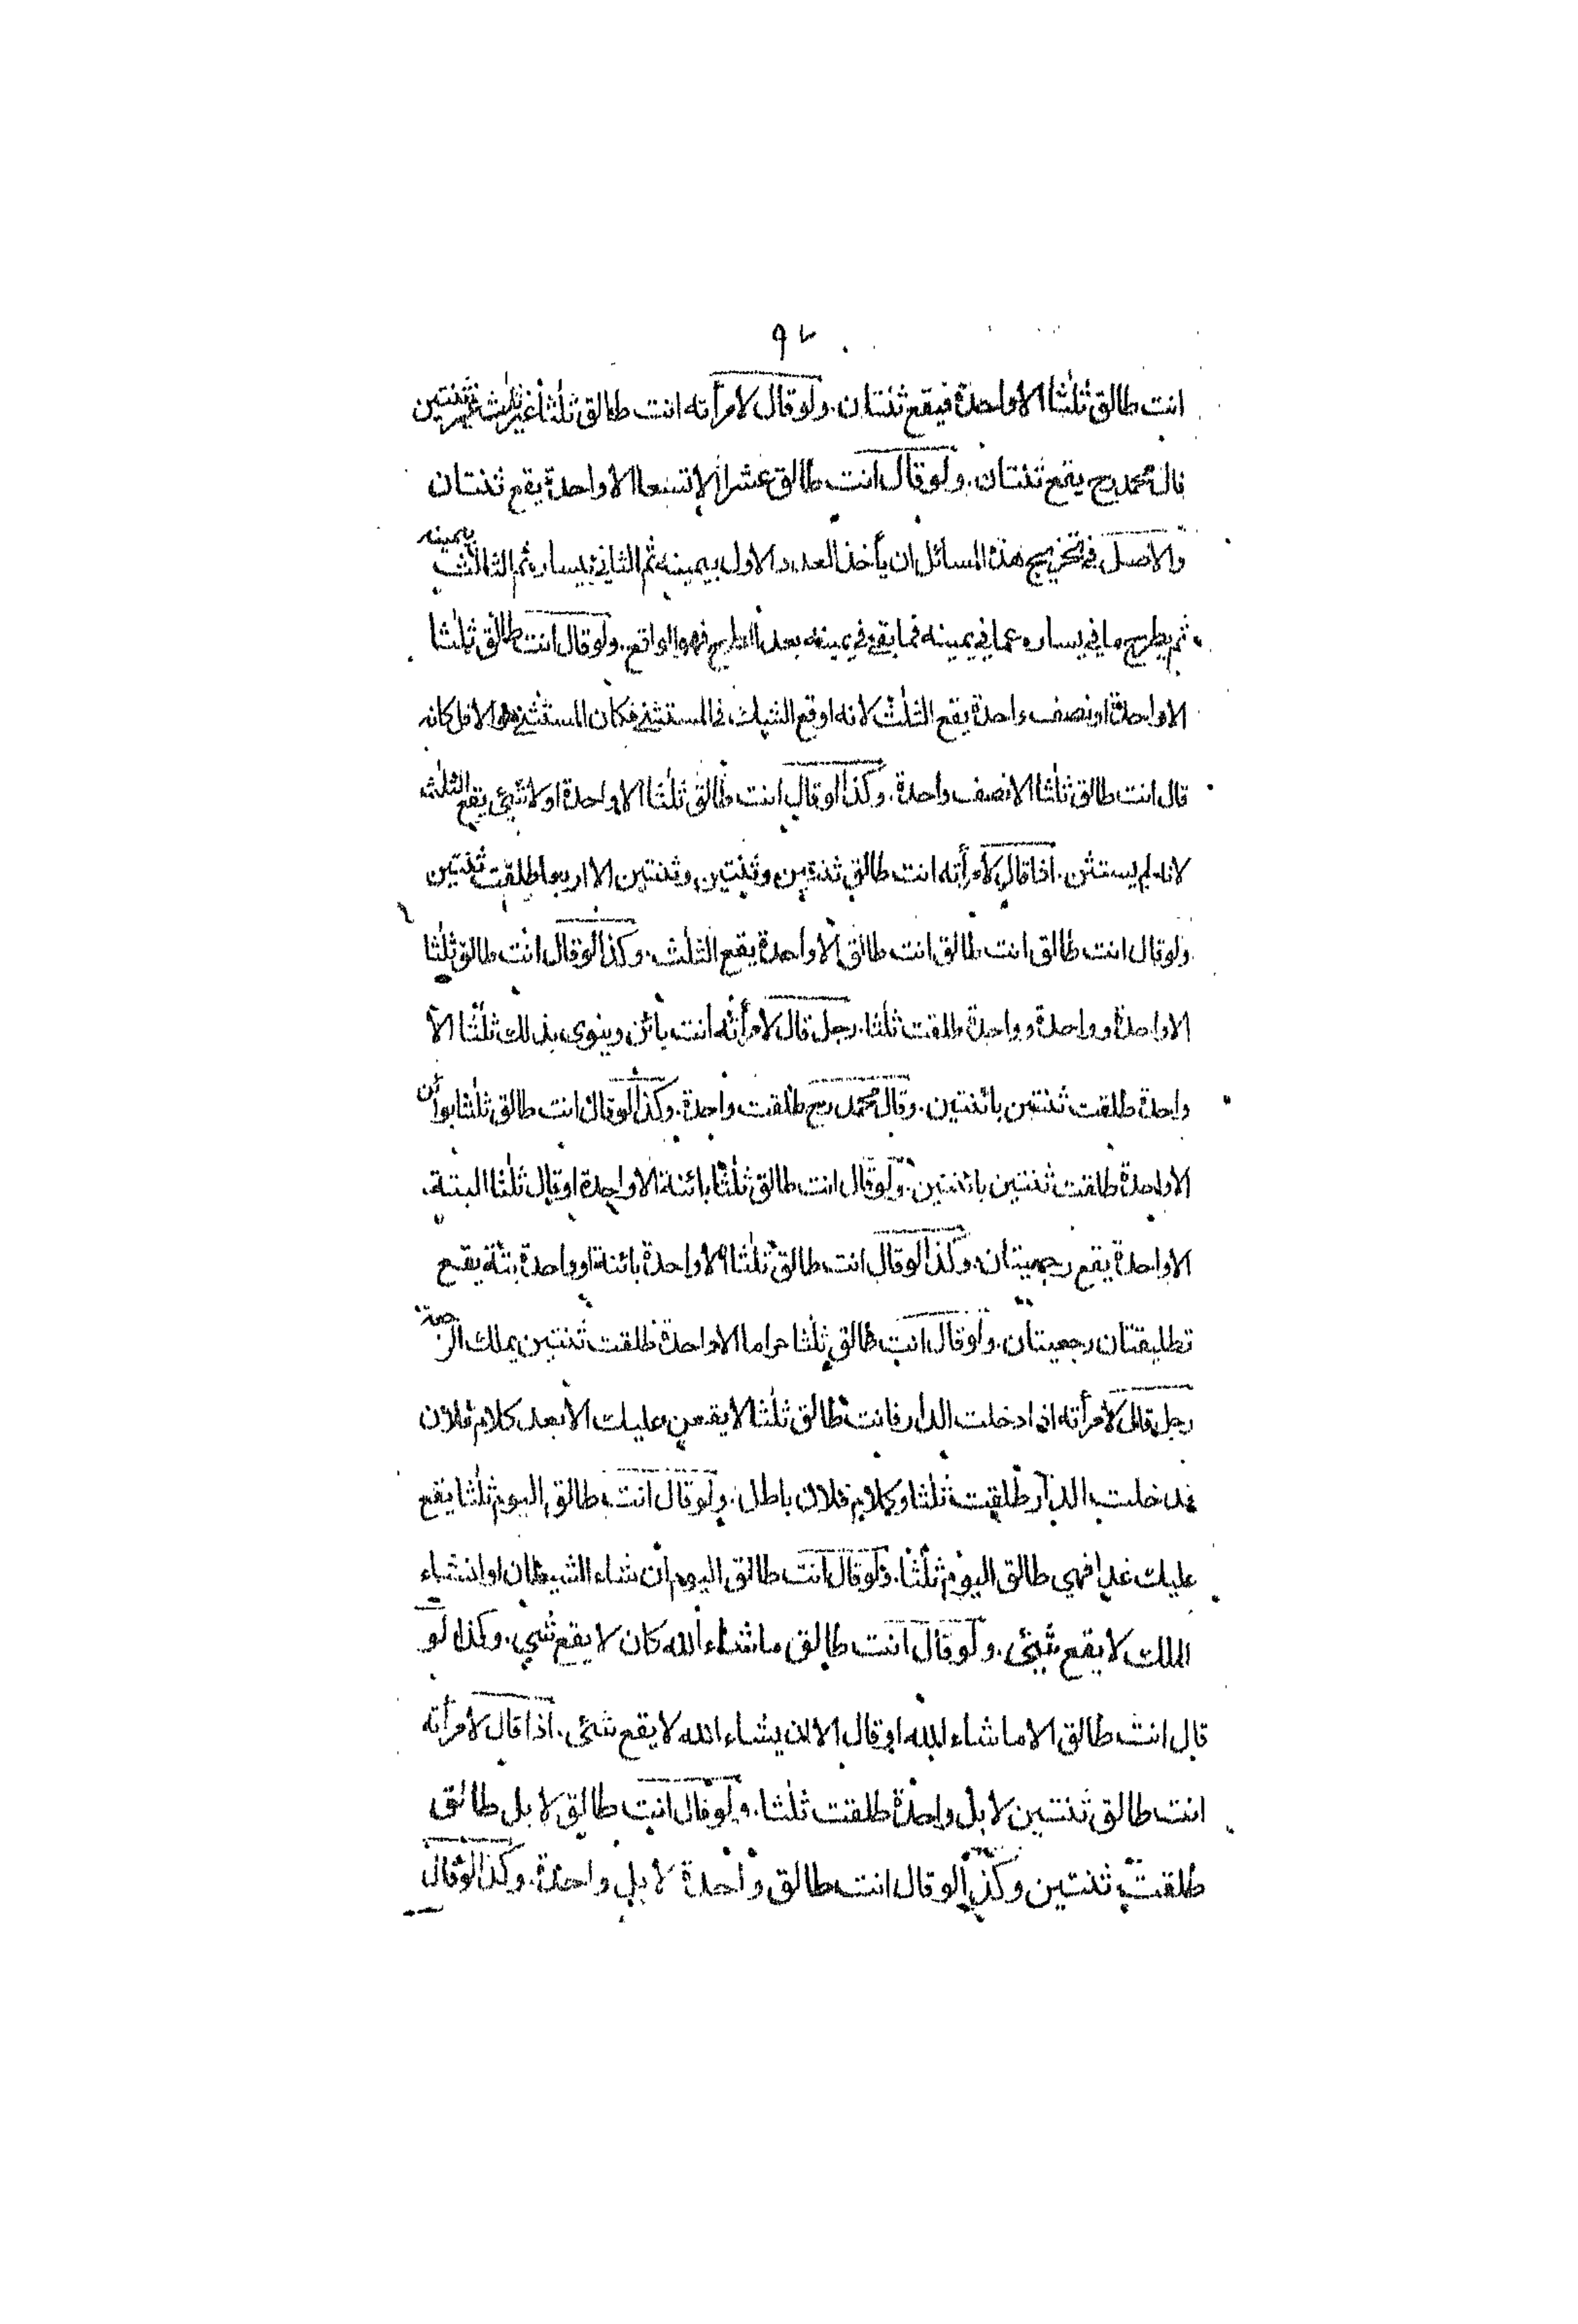 ٩٧
انت طالق ثلثا الا واحدة فيقع ثنتان. ولو قال لامرأته انت طالق ثلثا غير ثلث غير ثنتين
قال محمد رح يقع ثنتان. ولو قال انت طالق عشرا الا تسعا الا واحدة يقع ثنتان
والاصل في تخريج هذه المسائل ان يأخذ العدد الاول بيمينه ثم الثاني بيساره ثم الثالث بيمينه
ثم يطرح ما في يساره عما في يمينه فما بقي في يمينه بعد الطرح فهو الواقع. ولو قال انت طالق ثلثا
الا واحدة او نصف واحدة يقع الثلث لانه اوقع الشك في المستثنى فكان المستثنى هو الاقل كانه
قال انت طالق ثلثا الا نصف واحدة. وكذا لو قال انت طالق ثلثا الا واحدة او لا شيئ يقع الثلث
لانه لم يستثن. اذا قال لامرأته انت طالق ثنتين وثنتين وثنتين الا اربعا طلقت ثنتين
ولو قال انت طالق انت طالق انت طالق الا واحدة يقع الثلث. وكذا لو قال انت طالق ثلثا
الا واحدة وواحدة وواحدة طلقت ثلثا. رجل قال لامرأته انت بائن وينوى بذلك ثلثا الا
واحدة طلقت ثنتين بائنتين. وقال محمد رح طلقت واحدة. وكذا لو قال انت طالق ثلثا بوائن
الا واحدة طلقت ثنتين بائنتين. ولو قال انت طالق ثلثا بائنة الا واحدة او قال ثلثا البتة
الا واحدة يقع رجعيتان. وكذا لو قال انت طالق ثلثا الا واحدة بائنة او واحدة بتة يقع
تطليقتان رجعيتان. ولو قال انت طالق ثلثا حراما الا واحدة طلقت ثنتين يملك الرجعة
رجل قال لامرأته اذا دخلت الدار فانت طالق ثلثا لا يقعن عليك الا بعد كلام فلان
فدخلت الدار طلقت ثلثا وكلام فلان باطل. ولو قال انت طالق اليوم ثلثا يقع
عليك غدا فهي طالق اليوم ثلثا. ولو قال انت طالق اليوم ان شاء الشيطان او ان شاء
الملك لا يقع شيئ. ولو قال انت طالق ما شاء الله كان لا يقع شيئ. وكذا لو
قال انت طالق الا ما شاء الله او قال الا ان يشاء الله لا يقع شيئ. اذا قال لامرأته
انت طالق ثنتين لا بل واحدة طلقت ثلثا. ولو قال انت طالق لا بل طالق
طلقت ثنتين وكذا لو قال انت طالق واحدة لا بل واحدة. وكذا لو قال